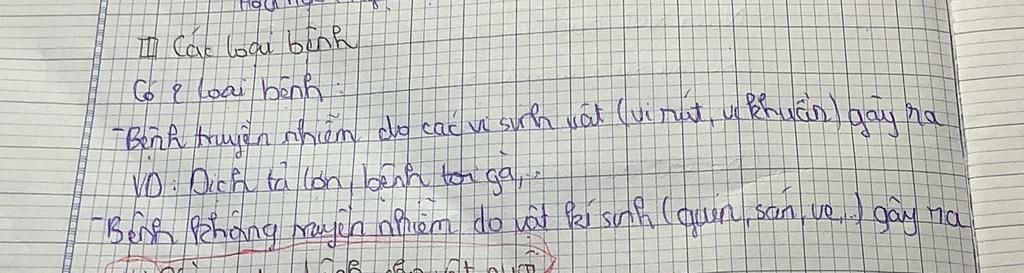 III Các loại bệnh
Có 2 loại bệnh:
- Bệnh truyền nhiễm do các vi sinh vật (vi rút, vi khuẩn) gây ra
VD: Dịch tả lợn, bệnh toi gà,..
- Bệnh không truyền nhiễm do vật kí sinh (giun, sán, ve,..) gây ra